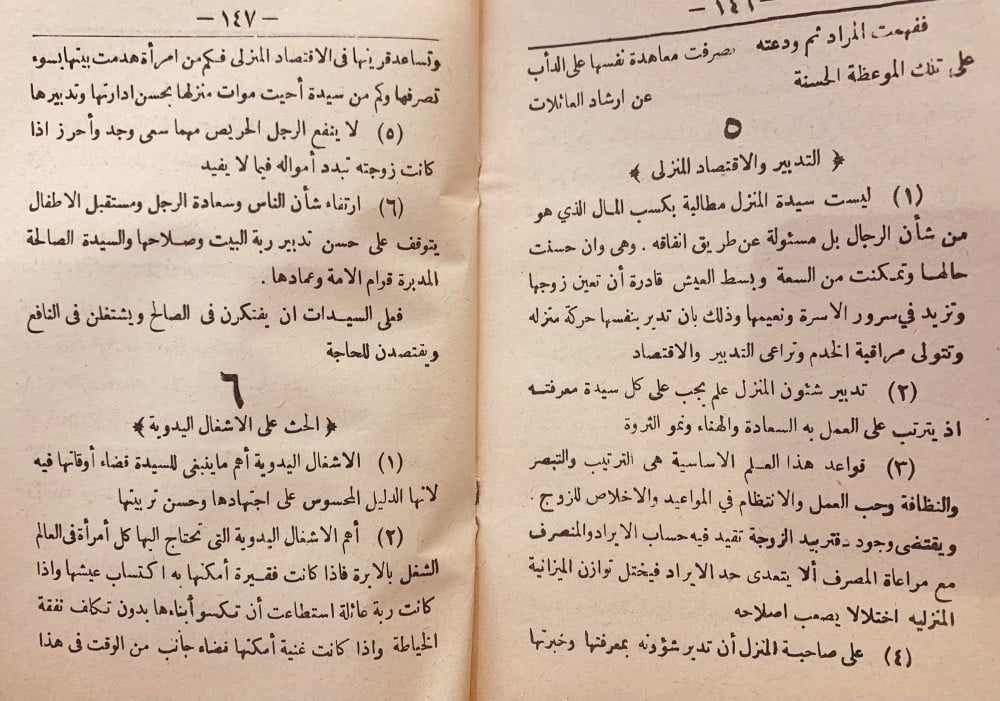 — ١٤٦ —
ففهمت المراد ثم ودعته وصرفت معاهدة نفسها على الدأب
على تلك الموعظة الحسنة عن ارشاد العائلات
٥
﴿ التدبير والاقتصاد المنزلى ﴾
(١) ليست سيدة المنزل مطالبة بكسب المال الذي هو
من شأن الرجال بل مسئولة عن طريق انفاقه . وهى وان حسنت
حالها وتمكنت من السعة وبسط العيش قادرة أن تعين زوجها
وتزيد في سرور الاسرة ونعيمها وذلك بان تدير بنفسها حركة منزله
وتتولى مراقبة الخدم وتراعى التدبير والاقتصاد
(٢) تدبير شئون المنزل علم يجب على كل سيدة معرفته
اذ يترتب على العمل به السعادة والهناء ونمو الثروة
(٣) قواعد هذا العلم الاساسية هى الترتيب والتبصر
والنظافة وحب العمل والانتظام في المواعيد والاخلاص للزوج .
ويقتضى وجود دفتر بيد الزوجة تقيد فيه حساب الايراد والمنصرف
مع مراعاة المصرف ألا يتعدى حد الايراد فيختل توازن الميزانية
المنزليه اختلالا يصعب اصلاحه
(٤) على صاحبة المنزل أن تدير شؤونه بمعرفتها وخبرتها
— ١٤٧ —
وتساعد قرينها فى الاقتصاد المنزلى فكم من امرأة هدمت بيتها بسوء
تصرفها وكم من سيدة أحيت موات منزلها بحسن ادارتها وتدبيرها
(٥) لا ينفع الرجل الحريص مهما سعى وجد وأحرز اذا
كانت زوجته تبدد أمواله فيما لا يفيد
(٦) ارتفاء شأن الناس وسعادة الرجل ومستقبل الاطفال
يتوقف على حسن تدبير ربة البيت وصلاحها والسيدة الصالحة
المدبرة قوام الامة وعمادها .
فعلى السيدات ان يفتكرن فى الصالح ويشتغلن فى النافع
ويقتصدن للحاجة
٦
﴿ الحث على الاشغال اليدوية ﴾
(١) الاشغال اليدوية أهم ماينبغى للسيدة قضاء أوقاتها فيه
لانها الدليل المحسوس على اجتهادها وحسن تربيتها
(٢) أهم الاشغال اليدوية التى تحتاج اليها كل أمرأة فى العالم
الشغل بالابرة فاذا كانت فقيرة أمكنها به اكتساب عيشها واذا
كانت ربة عائلة استطاعت أن تكسو أبناءها بدون تكلف نفقة
الخياطة واذا كانت غنية أمكنها قضاء جانب من الوقت فى هذا